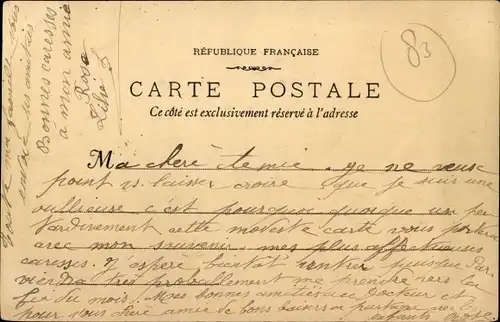 83
RÉPUBLIQUE FRANÇAISE
CARTE POSTALE
Ce côté est exclusivement réservé à l'adresse
Ma chère amie. Je ne veux
point vs. laisser croire que je suis une
oullieuse c'est pourquoi quoique un peu
tardivement cette modeste carte vous portera
avec mon souvenir mes plus affectueuses
caresses. J'espère bientôt rentrer
très probablement me prendre vers la
fin du mois. Mes bonnes amitiés au Docteur et
pour vous chère amie de bons baisers a partager avec
enfants Rose
Toute ma famille vous
envoie ses amitiés
Bonnes caresses
a mon amie
Rose